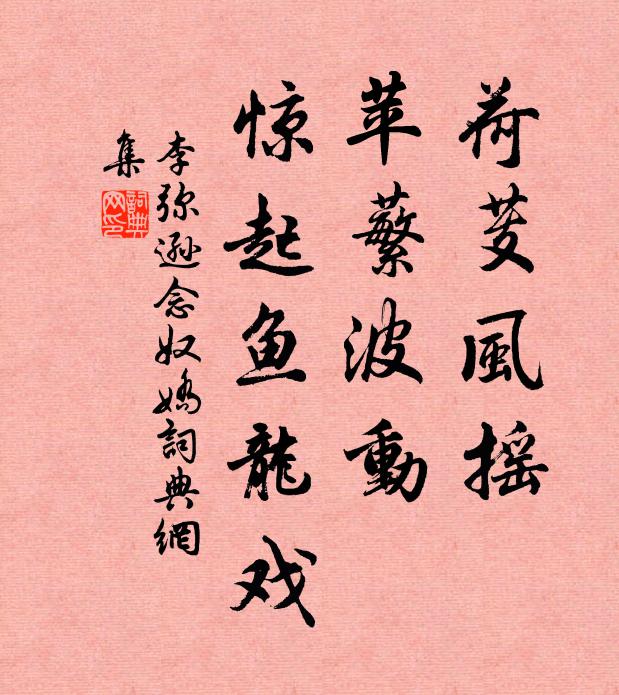 荷芰風摇
苹蘩波動
惊起鱼龍戏
李弥遜念奴嬌詞典網
集
詞典
网印